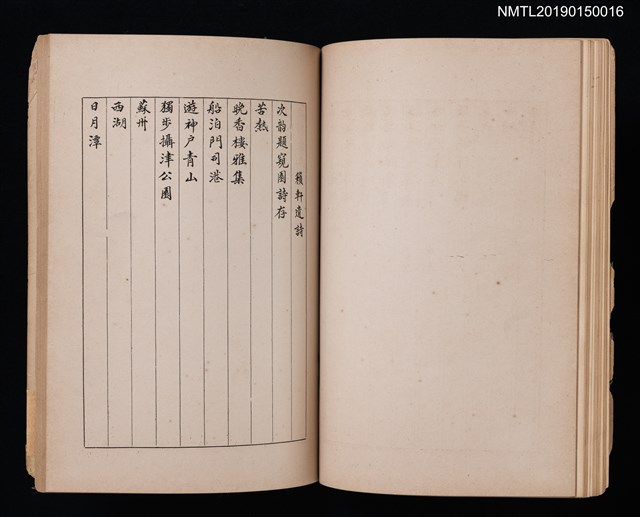 NMTL20190150016
籟軒遺詩
次韵題窺園詩存
苦熱
晚香樓雅集
船泊門司港
遊神戶青山
獨步攝津公園
蘇州
西湖
日月潭